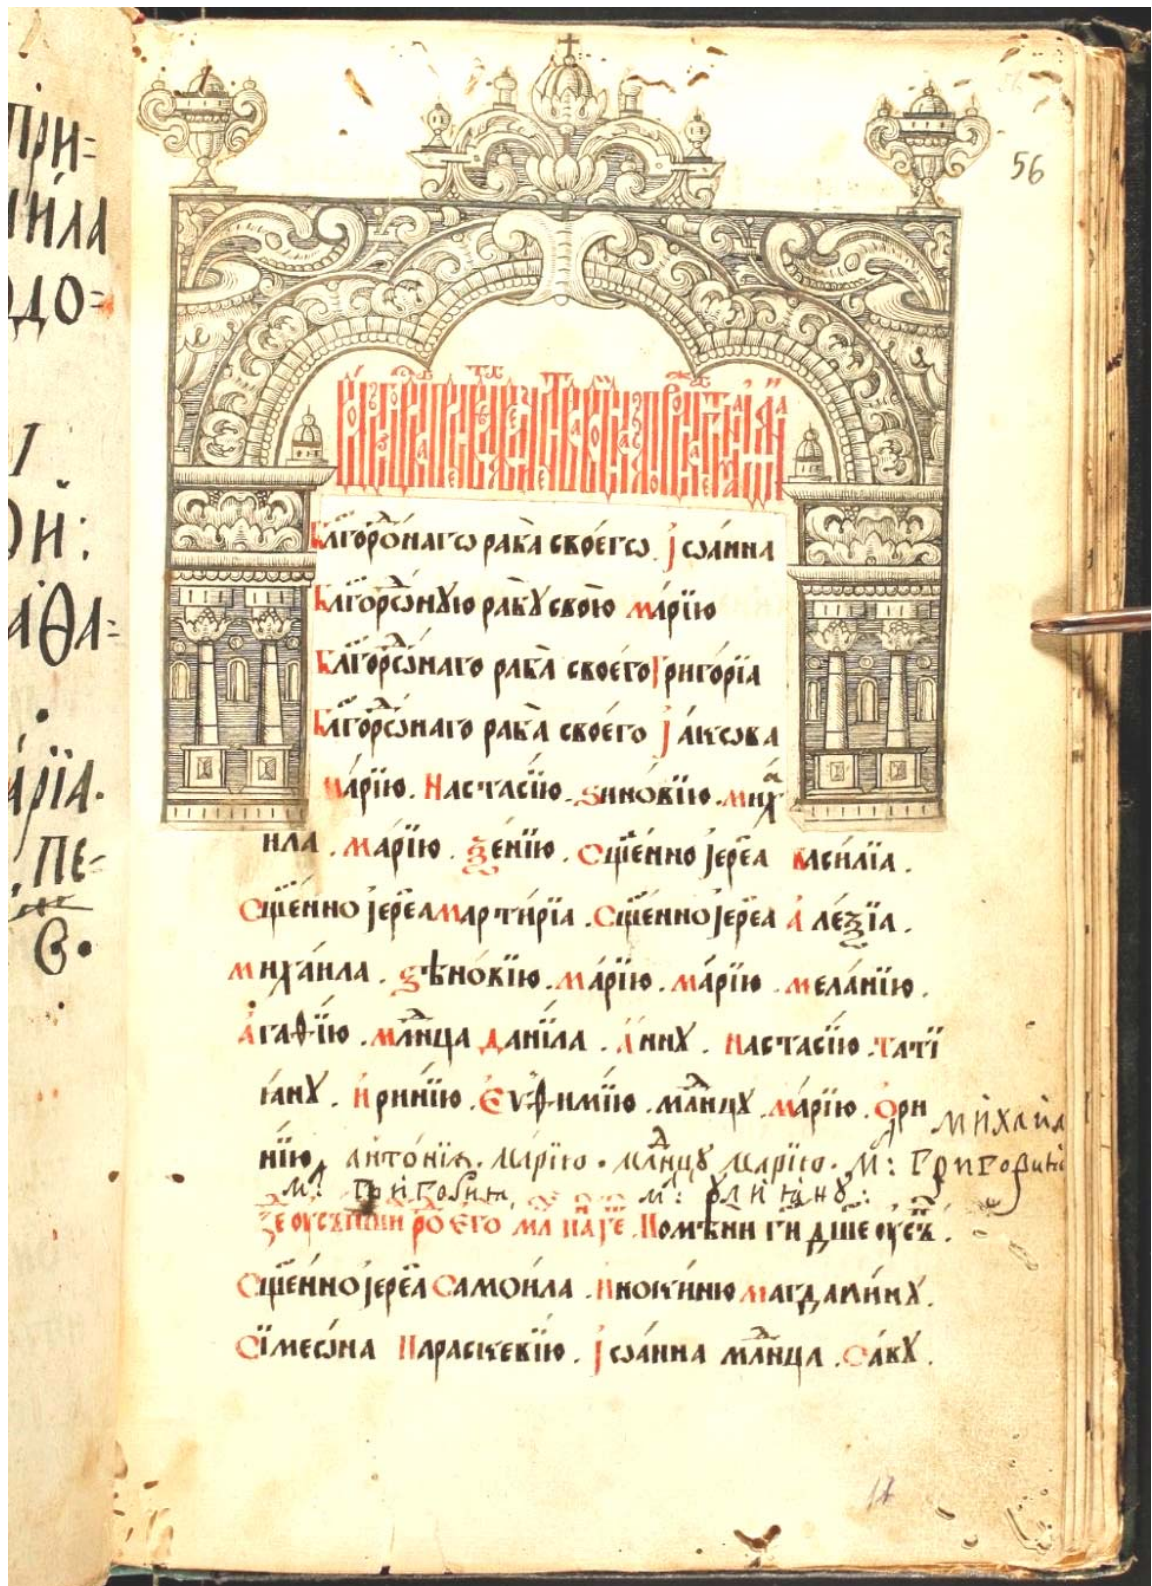 при=
и́ла
до=
І
ой:
аѳа=
а́рїа.
пе=
в.
56
Бл҃горо́днагѡ раба̀ своегѡ̀. Іѡа́нна
Бл҃горѡ́дную рабꙋ̀ свою̀ ма́рїю
Бл҃горѡ́днаго раба̀ своего̀ Григо́рїа
Бл҃горѡ́днаго раба̀ своего̀ Іа́кѡва
ма́рїю. Настасі́ю. Ѕино́вїю. миха
ила. ма́рїю. ѯе́нїю. сщ҃е́нно іере́а васи́лїа.
сщ҃е́нно іере́а марти́рїа. сщ҃е́нно іере́а але́ѯїа.
миха́ила. ѕѣно́вїю. ма́рїю. ма́рїю. мела́нїю.
ага́фїю. млⷣнца данїи́ла. а́ннꙋ. настасі́ю. татї
іа́нꙋ. ири́нїю. еѵфи́мїю. млⷣнцꙋ. ма́рїю. ѻри
михаила
нїю, анто́нїꙗ. марїю. млⷣнцꙋ марїю. м: григорїи
м: григорїи, м: ꙋлиꙗнꙋ:
Помѣни гⷭ҇и дш҃е ѹсъⷫ.
сщ҃е́нно іере́а самои́ла. инокиню магдали́нꙋ.
сїмеѡ́на параскевїю. іѡа́нна млⷣнца. са́вꙋ.
17